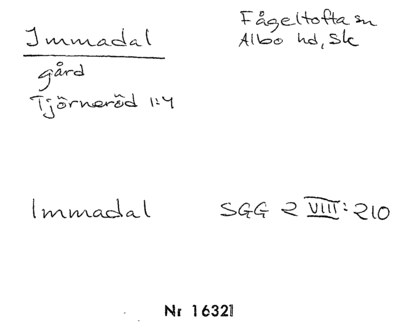 Immadal
Fågeltofta sn
Albo hd, Sk
gård
Tjörneröd 1:4
Immadal SGG 2 VIII:210
Nr 16321